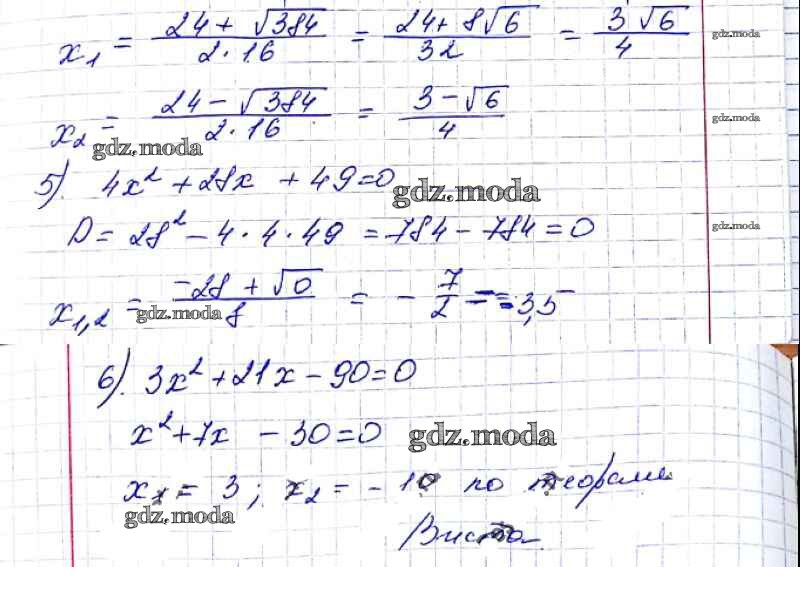 x₁ = (24 + √384)/(2·16) = (24 + 8√6)/32 = (3 √6)/4 gdz.moda
x₂ = (24 − √384)/(2·16) = (3 − √6)/4 gdz.moda
gdz.moda
5). 4x² + 28x + 49 = 0
gdz.moda
D = 28² − 4·4·49 = 784 − 784 = 0 gdz.moda
x₁,₂ = (−28 + √0)/8 = −7/2 = −3,5
gdz.moda
6). 3x² + 21x − 90 = 0
x² + 7x − 30 = 0 gdz.moda
x₁ = 3; x₂ = −10 по теореме
gdz.moda
Виета